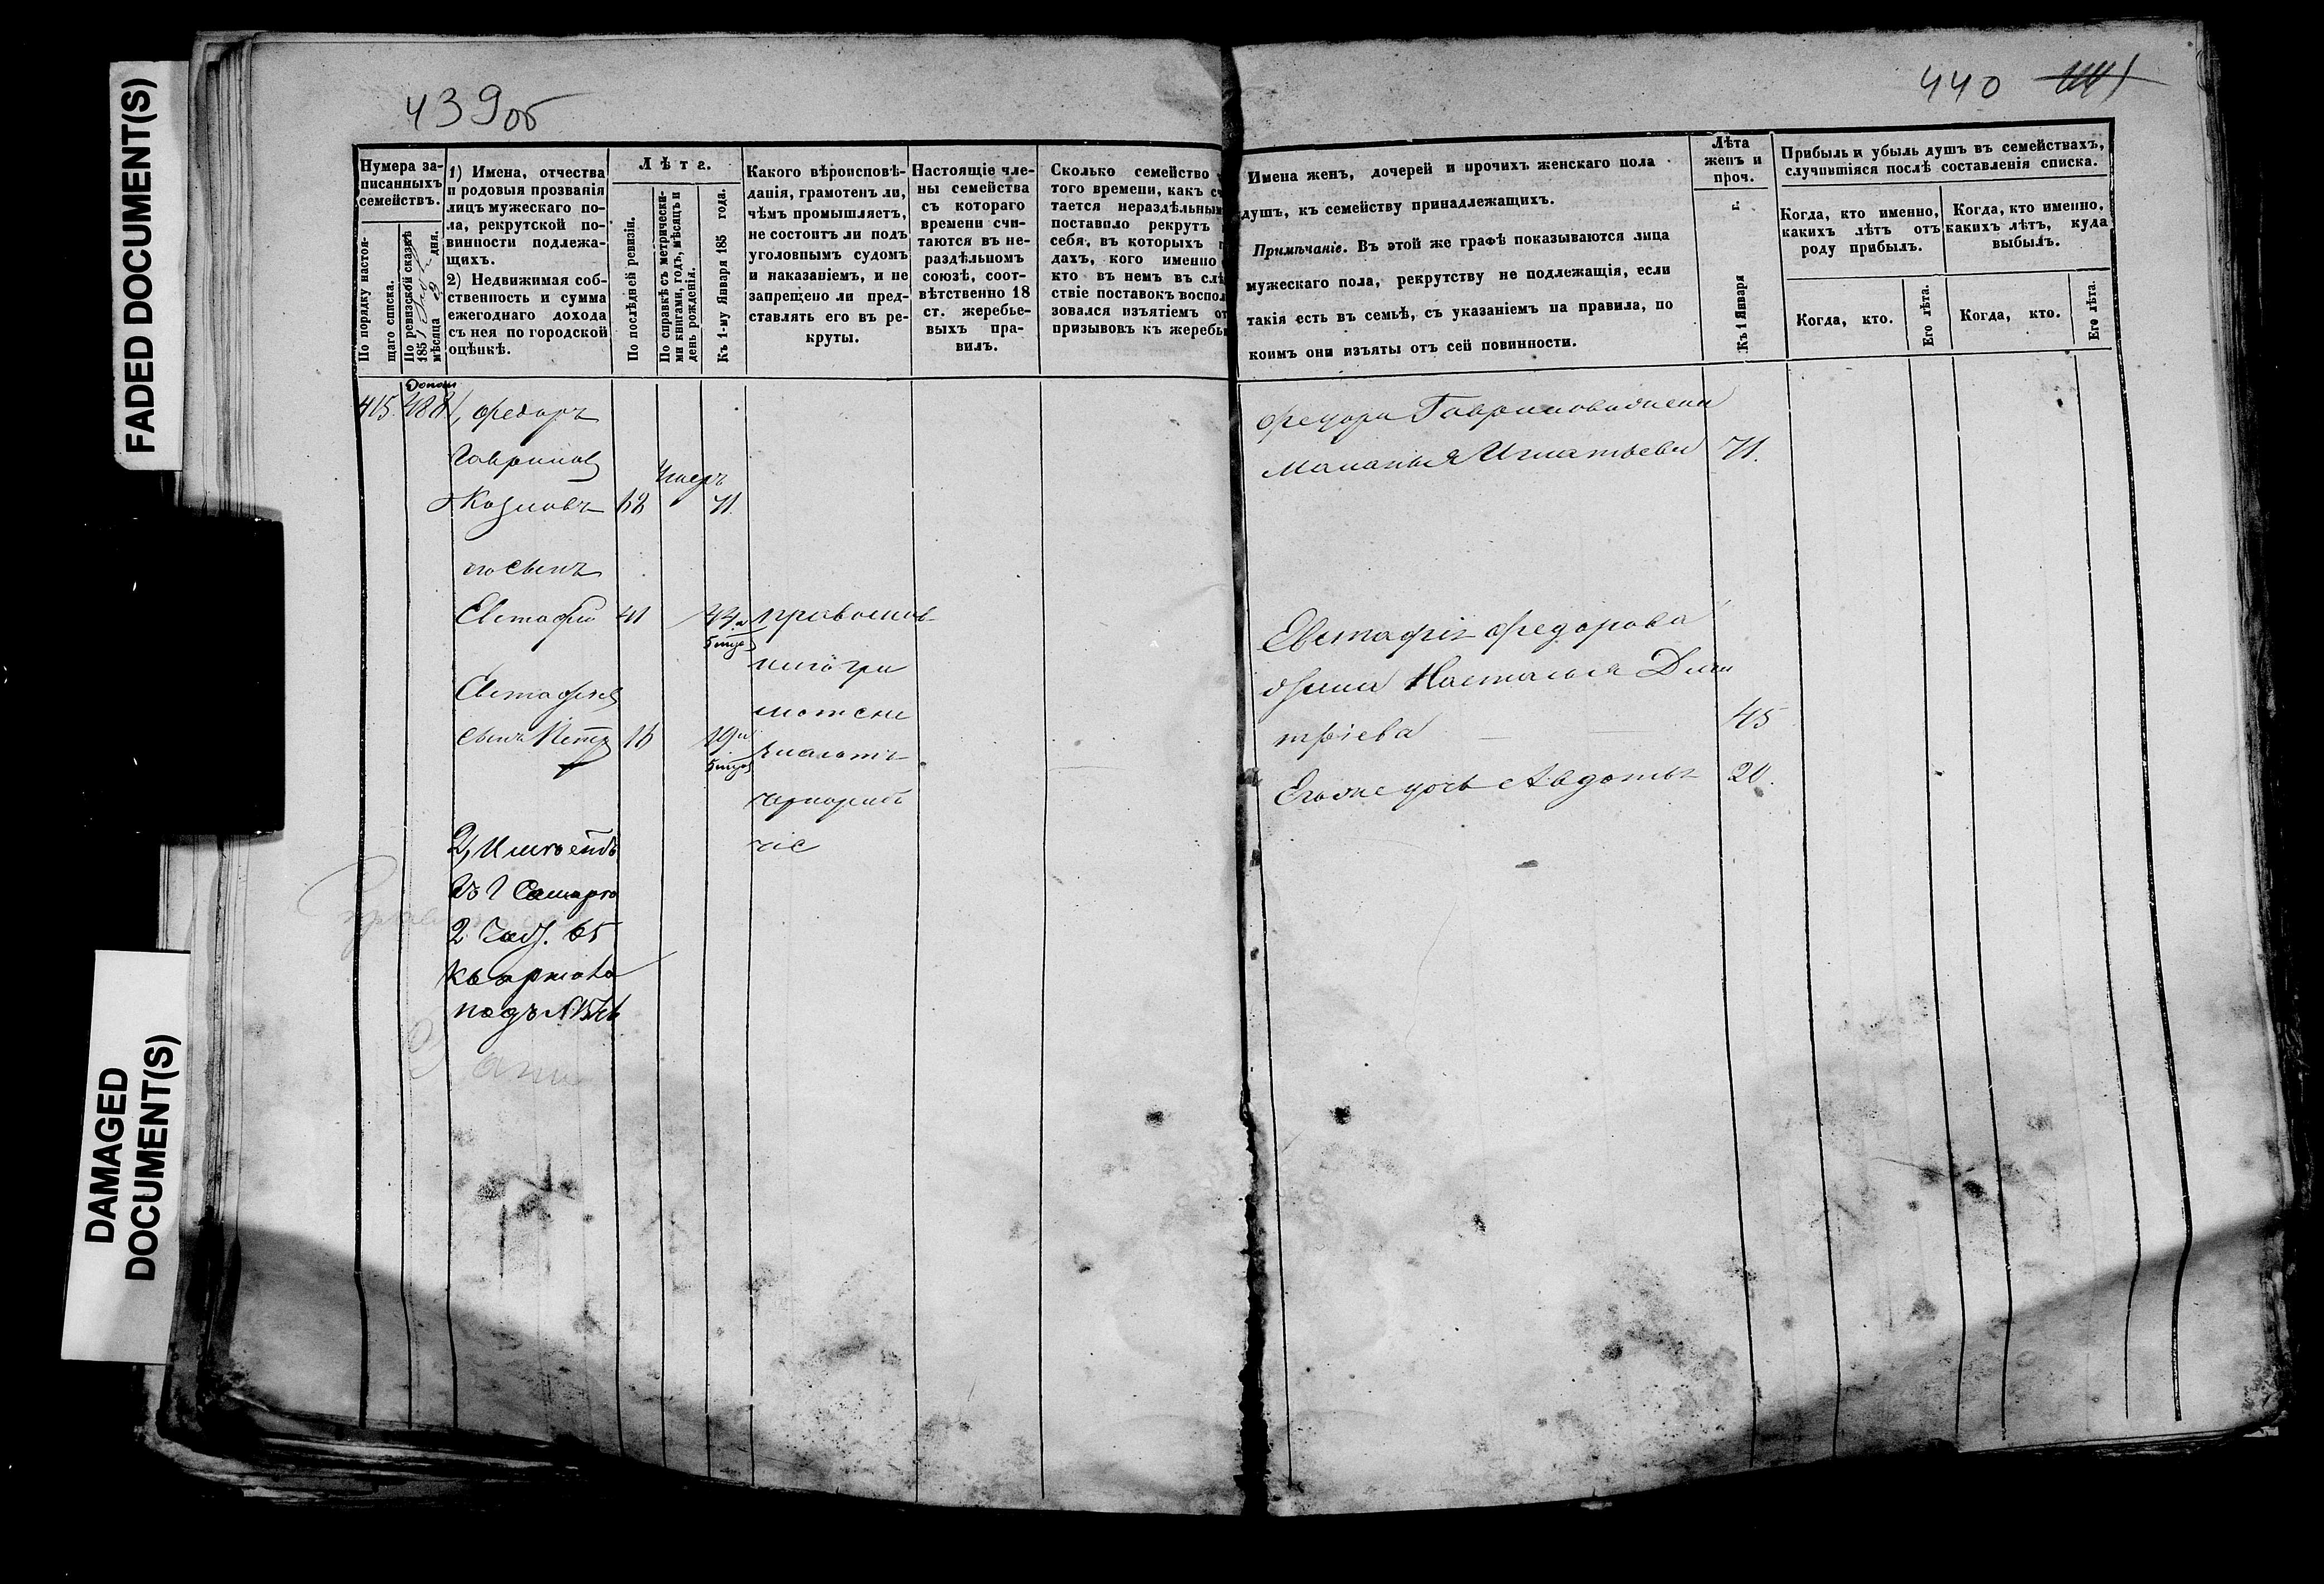 FADED DOCUMENT(S)
DAMAGED
DOCUMENT(S)
439об
Нумера за-
писанныхъ
семействъ.
По порядку настоя-
щаго списка.
По ревизской сказкѣ
185
мѣсяца дня.
1) Имена, отчества
и родовыя прозванія
лицъ мужескаго по-
ла, рекрутской по-
винности подлежа-
щихъ.
2) Недвижимая соб-
ственность и сумма
ежегоднаго дохода
съ нея по городской
оцѣнкѣ.
Лѣта.
По послѣдней ревизіи.
По справкѣ съ метрически-
ми книгами, годъ, мѣсяцъ и
день рожденія.
Къ 1-му Января 185 года.
Какого вѣроисповѣ-
данія, грамотенъ ли,
чѣмъ промышляетъ,
не состоитъ ли подъ
уголовнымъ судомъ
и наказаніемъ, и не
запрещено ли пред-
ставлять его въ ре-
круты.
Настоящіе чле-
ны семейства
съ котораго
времени счи-
таются въ не-
раздѣльномъ
союзѣ, соот-
вѣтственно 18
ст. жеребье-
выхъ пра-
вилъ.
Сколько семейство
того времени, какъ сч
тается нераздѣльным
поставило рекрутъ
себя, въ которыхъ г
дахъ, кого именно
кто въ немъ въ слѣ
ствіе поставокъ воспол
зовался изъятіемъ от
призывовъ къ жеребы
415. 488 1, Федоръ
Гаврилов
Козловъ 68 Умеръ 71.
его сынъ
Евстафій 41 44 и
5 мцов
православ
ный гра
мотене
Евстафіев
сынъ Петр 16 19 и
5 мцов
знаетъ
чернораб
чіе
2, Имѣетъ
въ г Самаре
2 Част. 65
квартала
подъ №
440
Имена женъ, дочерей и прочихъ женскаго пола
душъ, къ семейству принадлежащихъ.
Примѣчаніе. Въ этой же графѣ показываются лица
мужескаго пола, рекрутству не подлежащія, если
такія есть въ семьѣ, съ указаніемъ на правила, по
коимъ они изъяты отъ сей повинности.
Лѣта
женъ и
проч.
Къ 1 Января г.
Прибыль и убыль душъ въ семействахъ,
случившіяся послѣ составленія списка.
Когда, кто именно,
какихъ лѣтъ отъ
роду прибылъ.
Когда, кто именно,
какихъ лѣтъ, куда
выбылъ.
Когда, кто.
Его лѣта.
Когда, кто.
Его лѣта.
Федора Гаврилова жена
Маланья Игнатьева 71.
Евстафія Федорова
жена Настасья Дми
тріева 45
Его же дочь Авдотья 20.